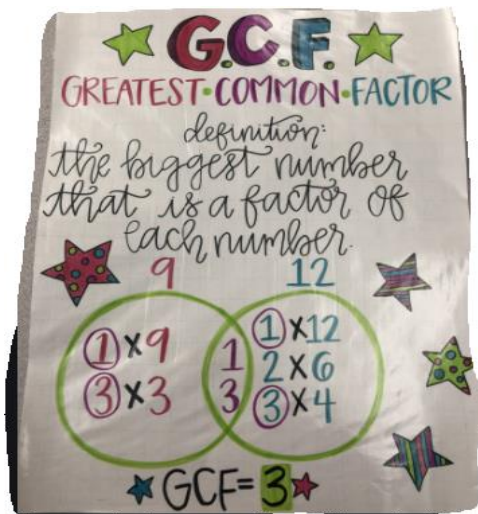 G.C.F.
GREATEST·COMMON·FACTOR
definition:
the biggest number
that is a factor of
each number.
9 12
1×9 1 1×12
2×6
3×3 3 3×4
GCF=3